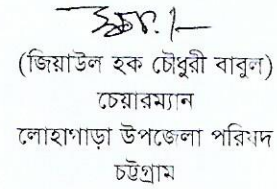 (জিয়াউল হক চৌধুরী বাবুল)
চেয়ারম্যান
লোহাগাড়া উপজেলা পরিষদ
চট্টগ্রাম